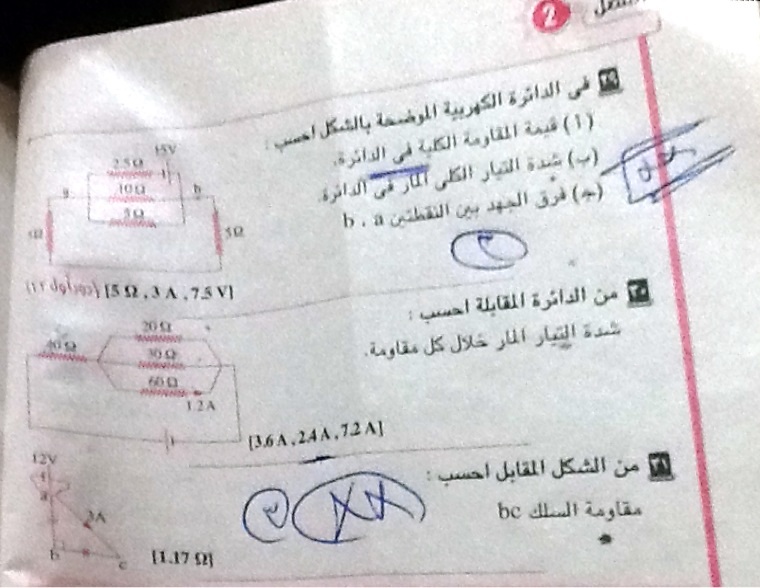 2
٢٩ في الدائرة الكهربية الموضحة بالشكل احسب :
(أ) قيمة المقاومة الكلية في الدائرة.
(ب) شدة التيار الكلي المار في الدائرة.
(ج) فرق الجهد بين النقطتين b ، a
15V
2.5Ω
a 10Ω b
5Ω
5Ω
[5 Ω , 3 A , 7.5 V]
٣٠ من الدائرة المقابلة احسب :
شدة التيار المار خلال كل مقاومة.
20Ω
40Ω 30Ω
60Ω
1.2A
[3.6 A , 2.4 A , 7.2 A]
٣١ من الشكل المقابل احسب :
مقاومة السلك bc
12V
a
3A
b c
[1.17 Ω]